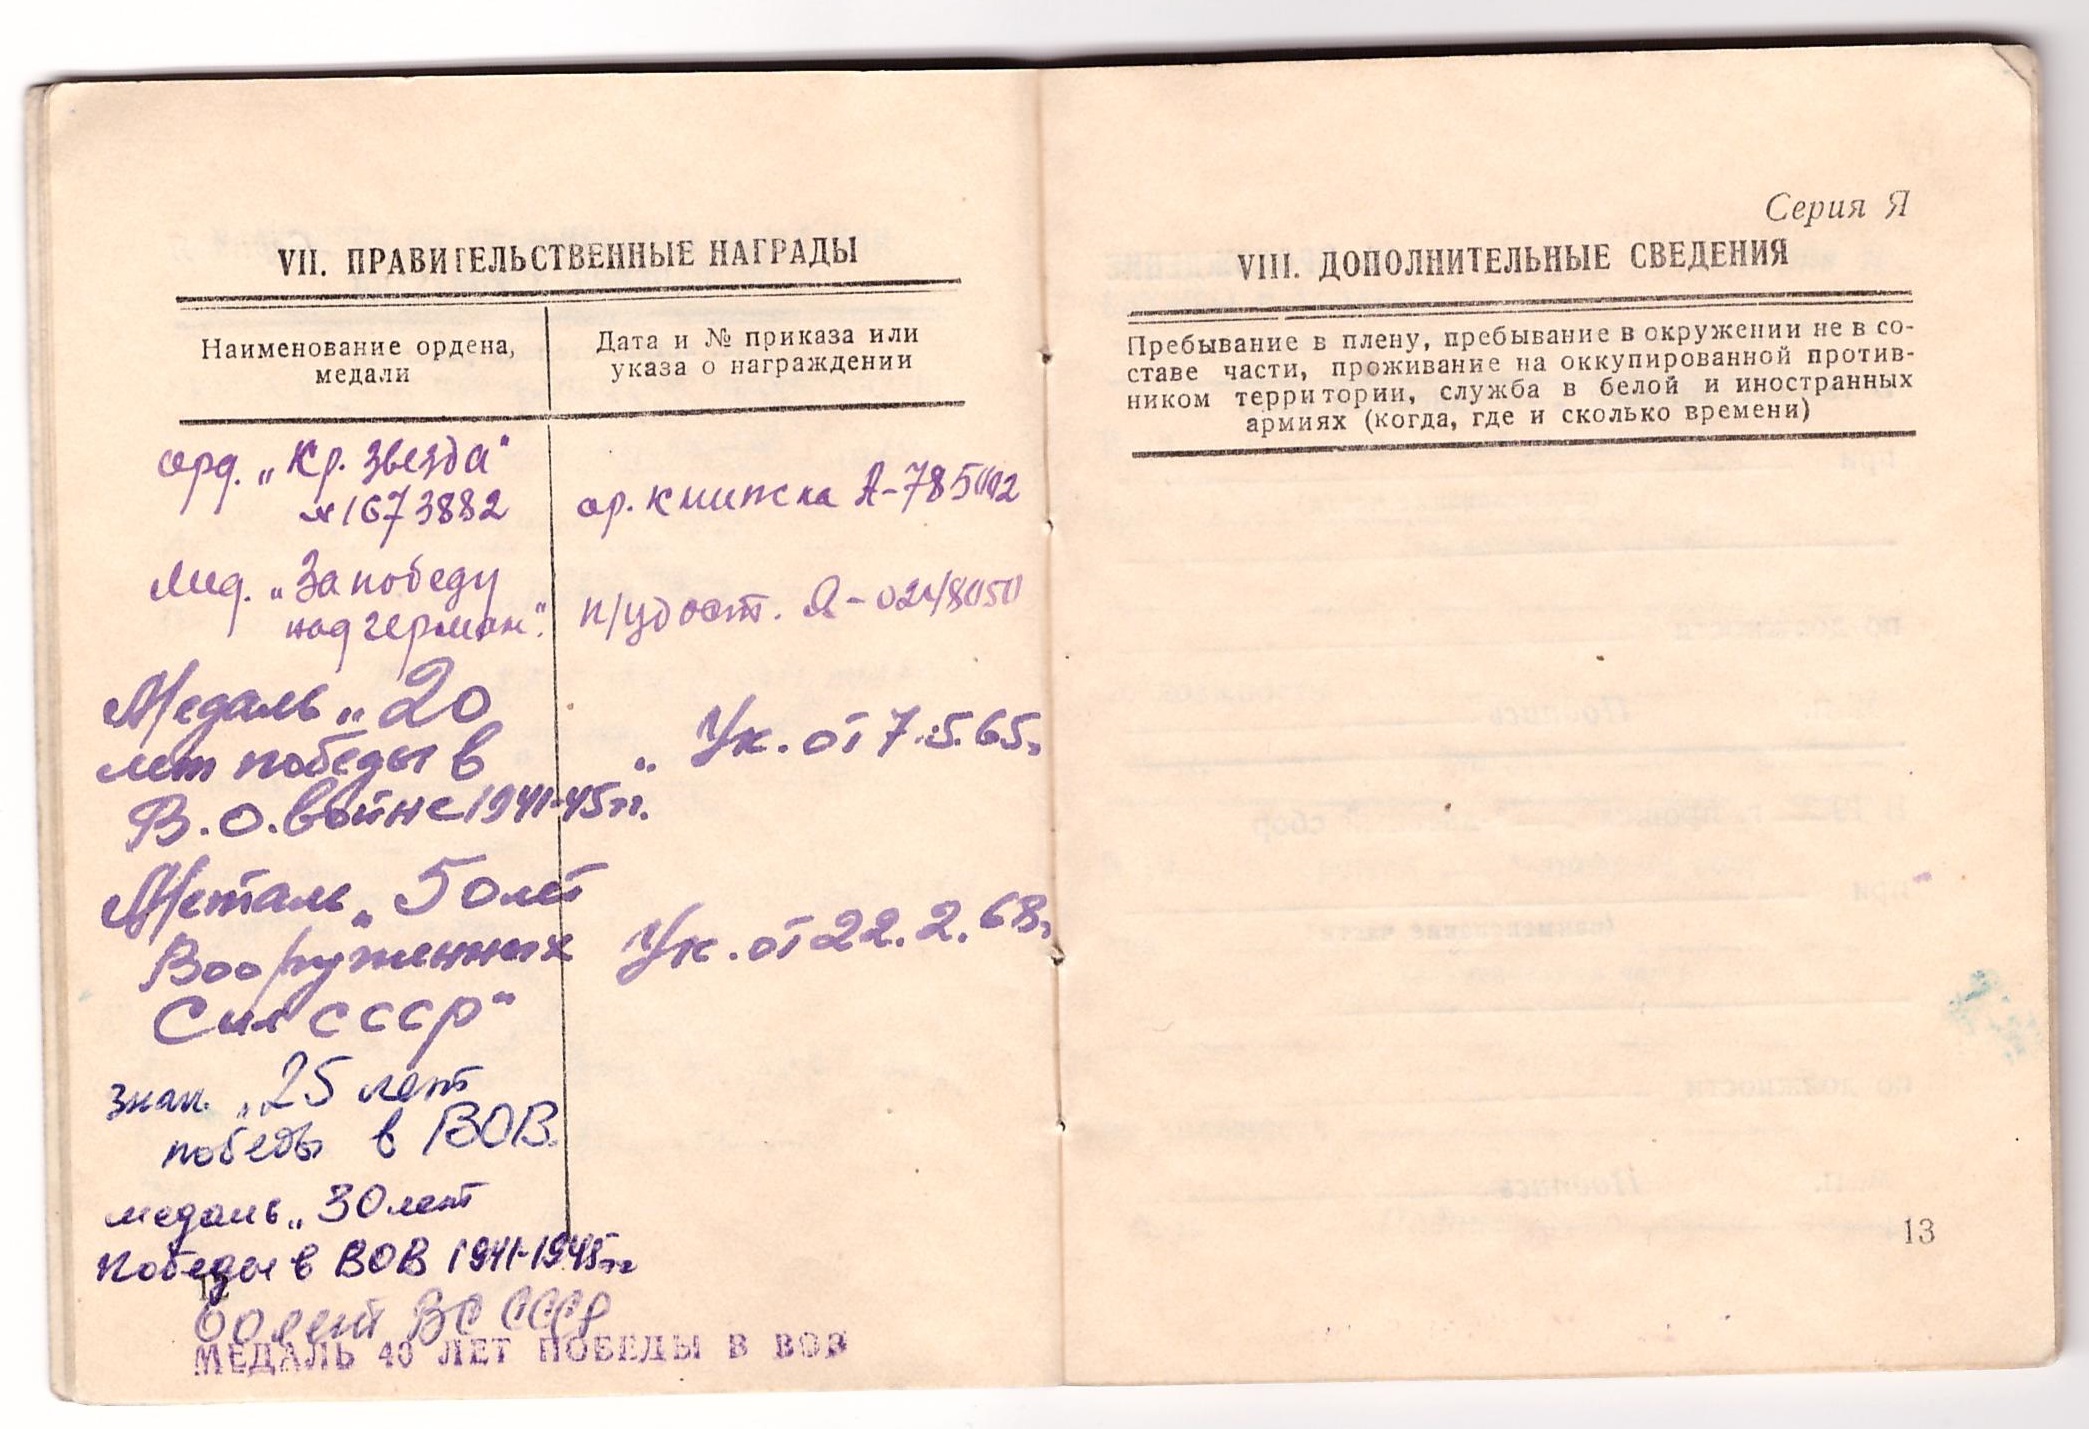 VII. ПРАВИТЕЛЬСТВЕННЫЕ НАГРАДЫ
Наименование ордена,
медали
Дата и № приказа или
указа о награждении
орд. „Кр. Звезда"
№1673882
ор. книжка А-785002
мед. „За победу
над герман."
п/удост. Я-0248050
Медаль „20
лет победы в
В.О.войне 1941-45гг."
Ук. от 7.5.65г.
Металь „50 лет
Вооруженных
Сил СССР"
Ук. от 22.2.68г.
знак „25 лет
победы в ВОВ.
медаль „30 лет
Победы в ВОВ 1941-1945гг
12
60 лет ВС СССР
МЕДАЛЬ 40 ЛЕТ ПОБЕДЫ В ВОВ
Серия Я
VIII. ДОПОЛНИТЕЛЬНЫЕ СВЕДЕНИЯ
Пребывание в плену, пребывание в окружении не в со-
ставе части, проживание на оккупированной против-
ником территории, служба в белой и иностранных
армиях (когда, где и сколько времени)
13